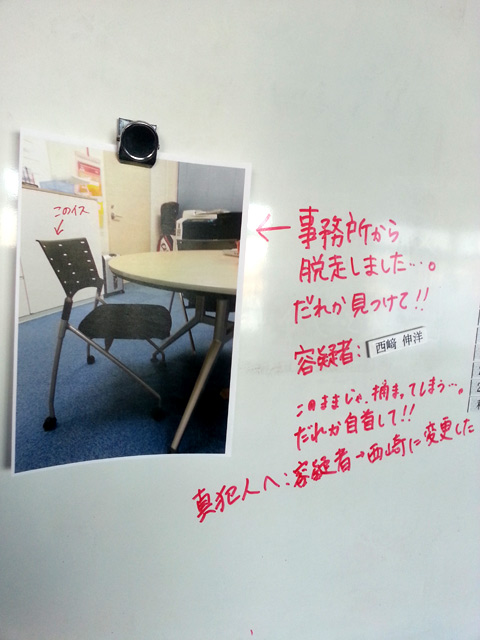 このイス
← 事務所から
脱走しました…。
だれか見つけて!!
容疑者: 西﨑 伸洋
このままじゃ、捕まってしまう…。
だれか自首して!!
真犯人へ:容疑者→西崎に変更した